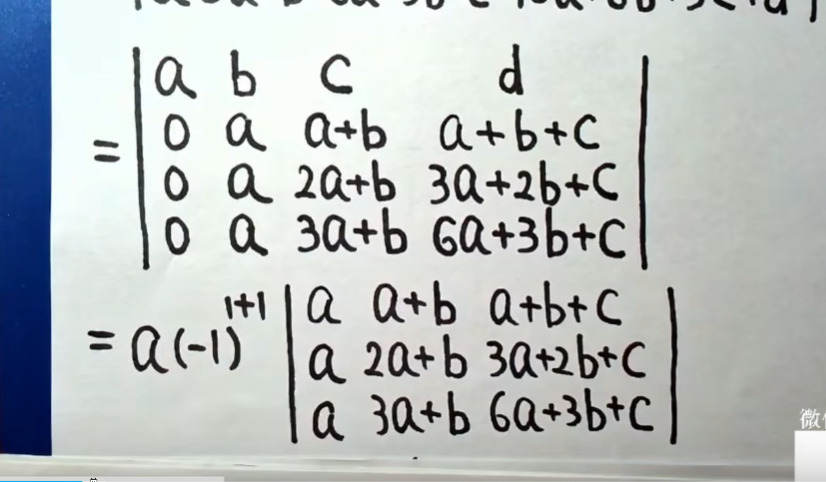 a b c d
0 a a+b a+b+c
= 0 a 2a+b 3a+2b+c
0 a 3a+b 6a+3b+c
= a(-1)^{1+1} a a+b a+b+c
a 2a+b 3a+2b+c
a 3a+b 6a+3b+c
微